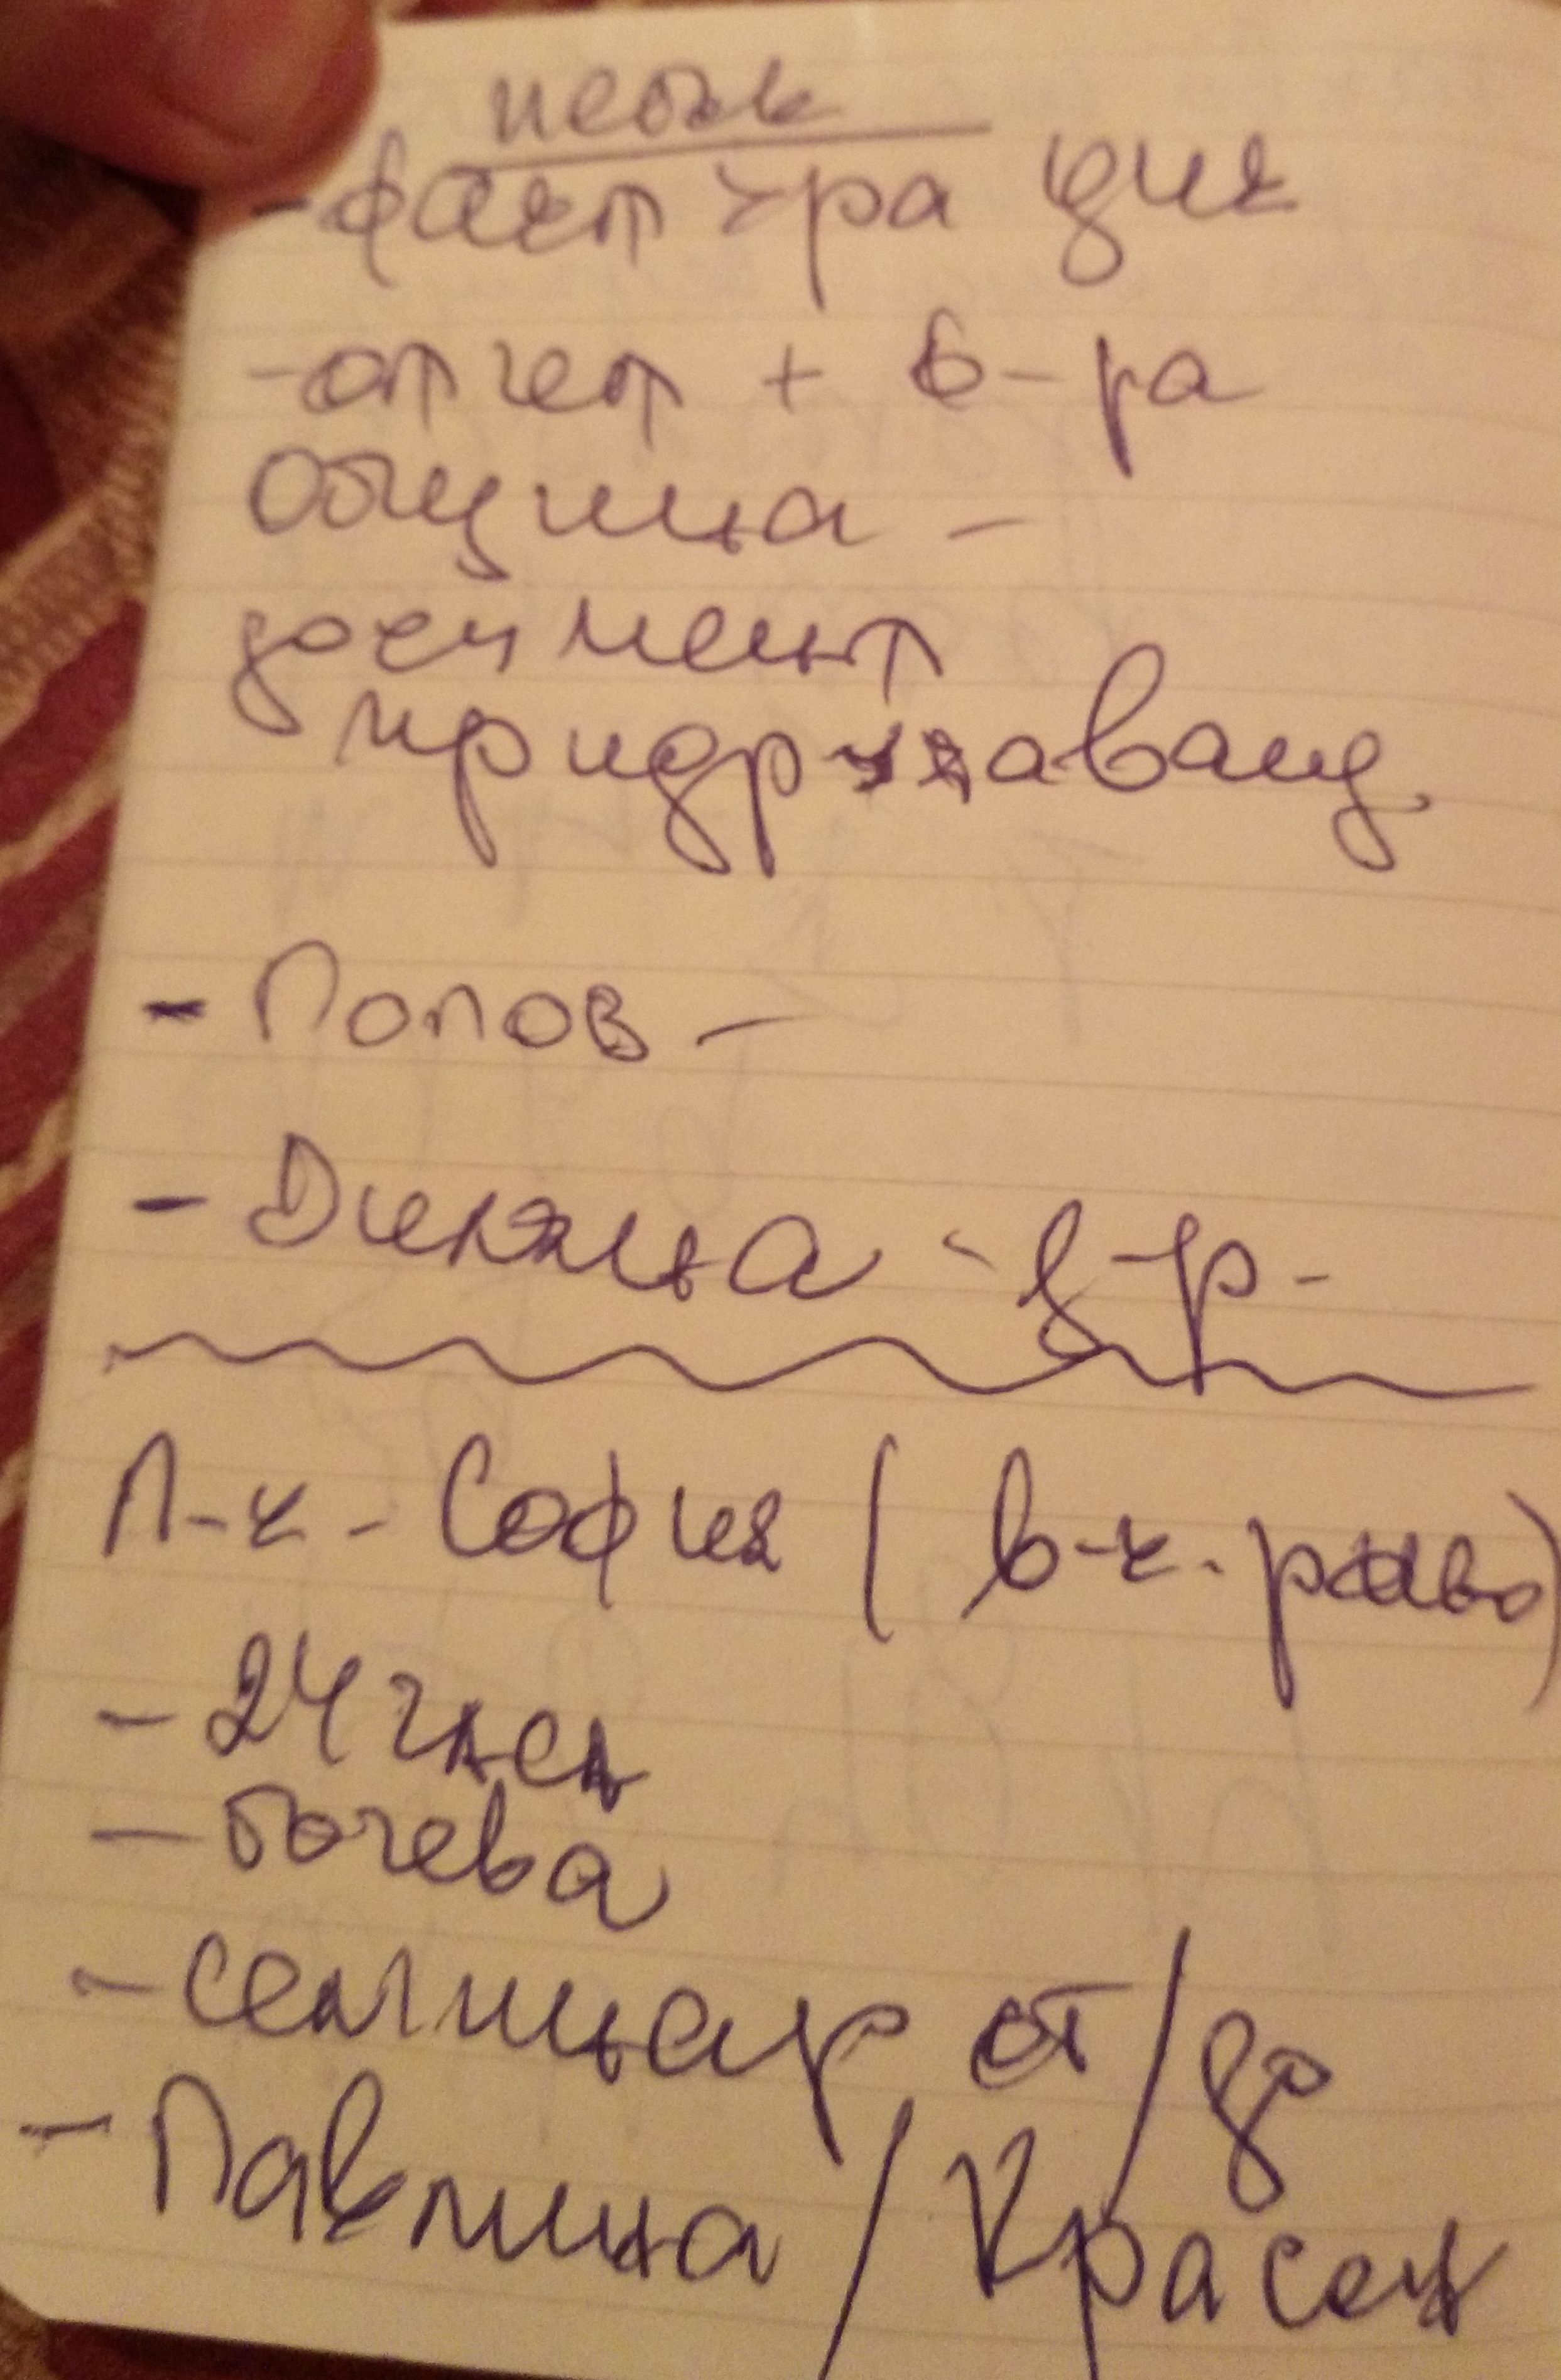 петък
- фактура цик
- отчет + б-ра
Община -
документ
придружаващ
- Попов -
- Диляна - д-р -
П-к - София ( в-к. право)
- 24 часа
- Бочева
- семинар от / др
- Павлина / Красен